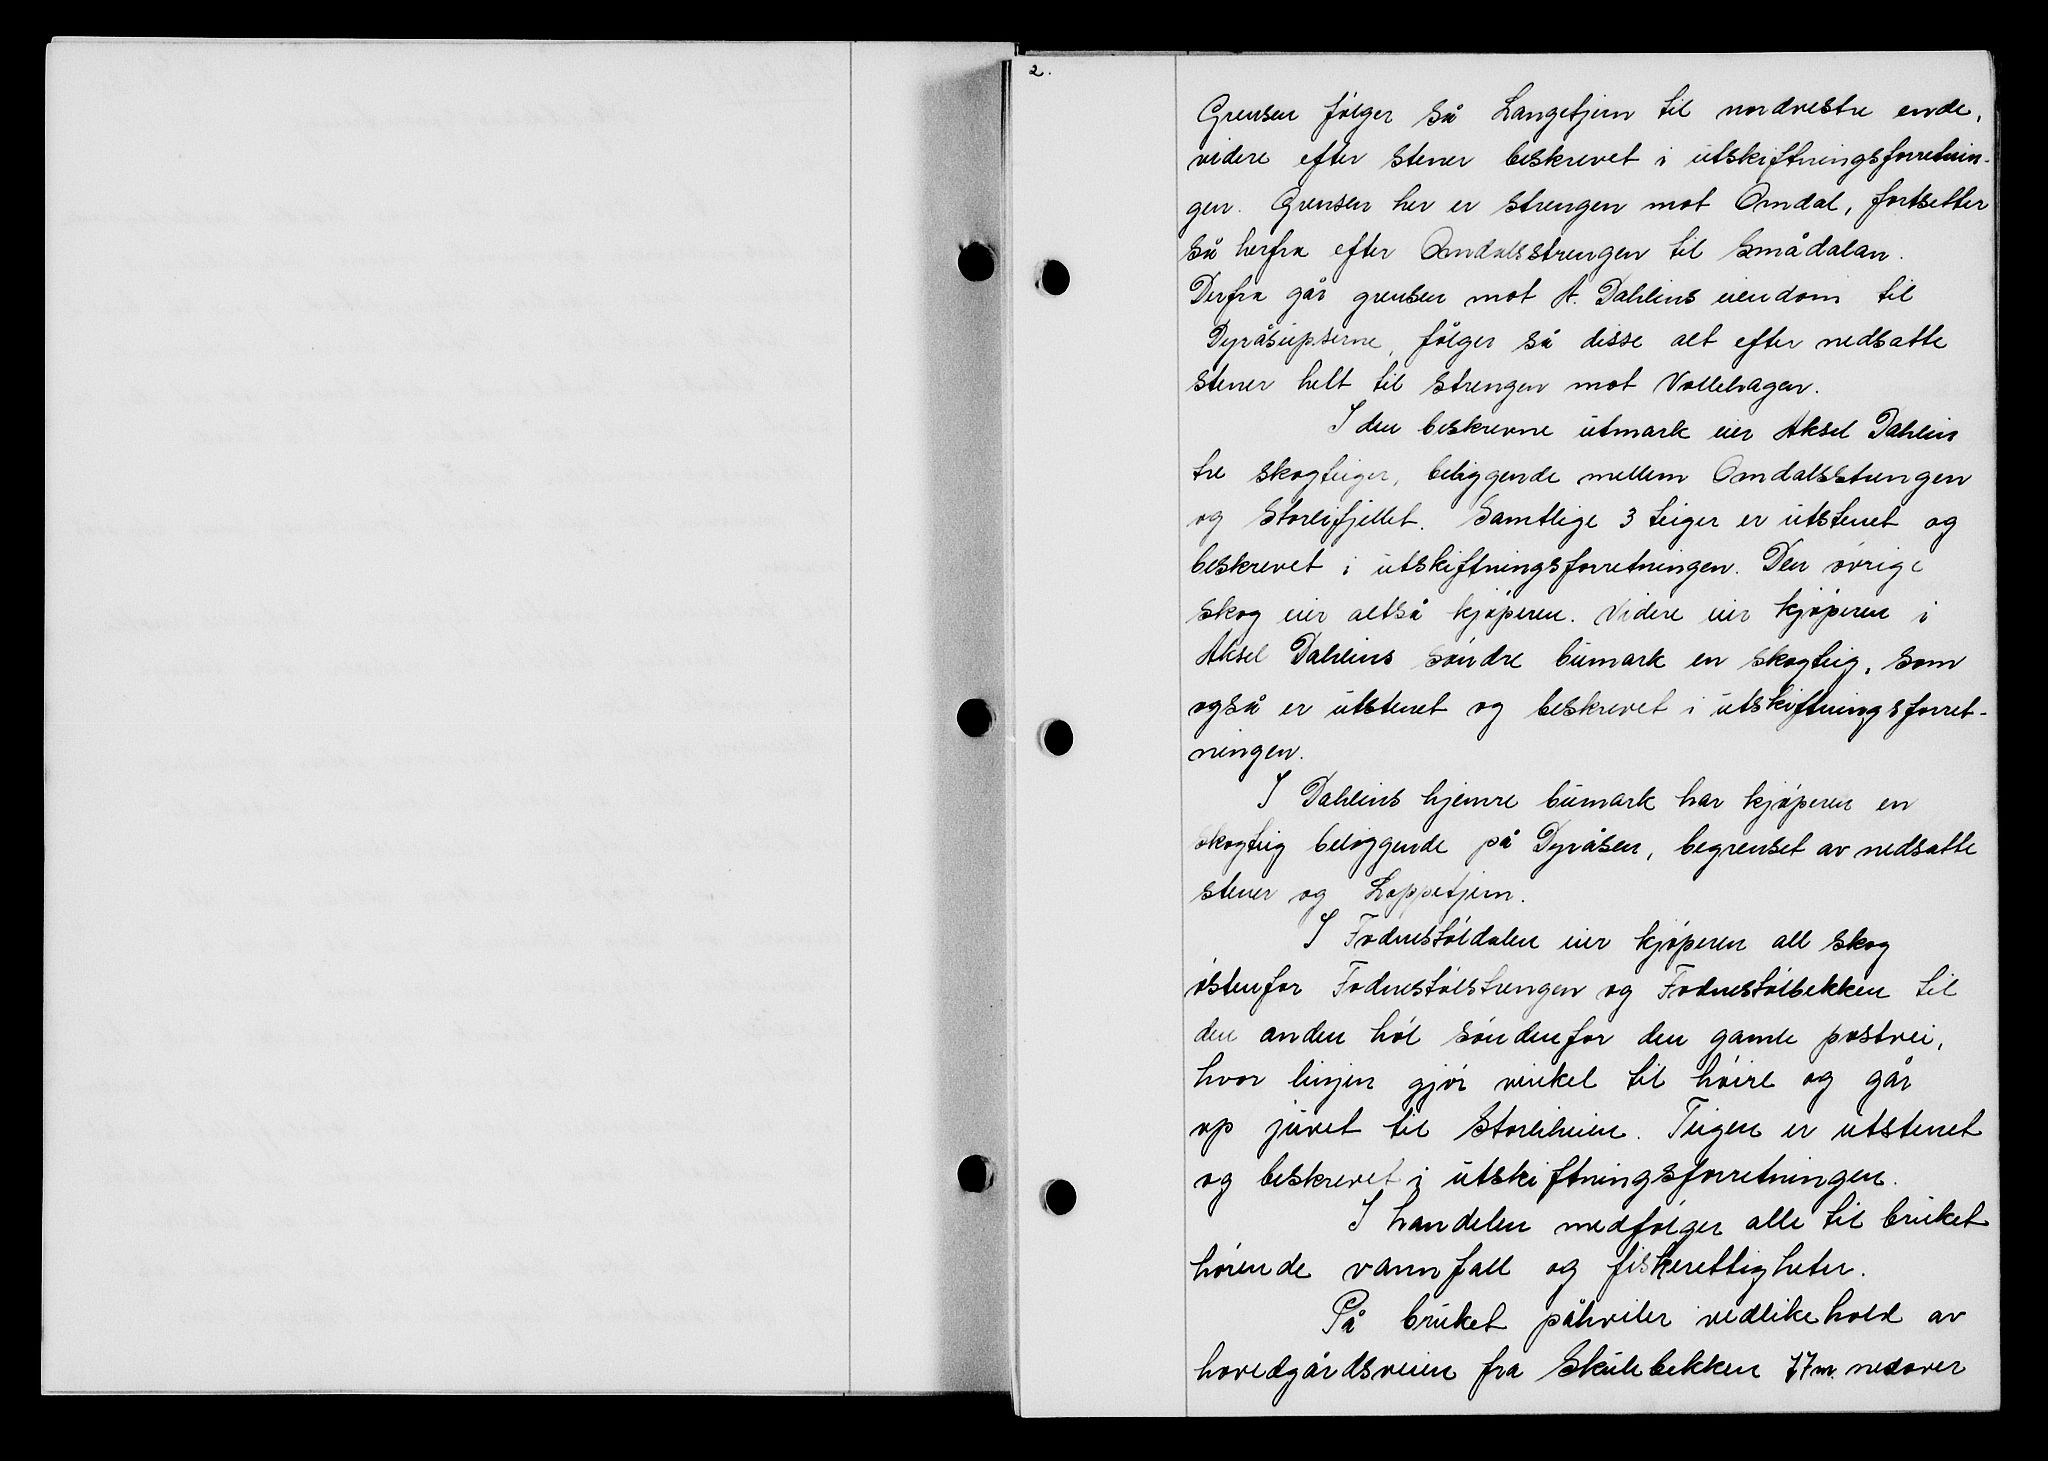 2.
Grensen følger så Langetjern til nordvestre ende,
videre efter stener beskrevet i utskiftningsforretnin-
gen. Grensen her er strengen mot Omdal, fortsetter
så herfra efter Omdalsstrengen til Smådalan.
Derfra går grensen mot A. Dahlens eiendom til
Dyråsupserne, følger så disse alt efter nedsatte
stener helt til strengen mot Vollehagen.
I den beskrevne utmark eier Aksel Dahlen
tre skogteiger, beliggende mellem Omdalsstrengen
og Storlifjellet. Samtlige 3 teiger er utstenet og
beskrevet i utskiftningsforretningen. Den øvrige
skog eier altså kjøperen. Videre eier kjøperen i
Aksel Dahlens søndre bumark en skogteig, som
også er utstenet og beskrevet i utskiftningsforret-
ningen.
I Dahlens hjemre bumark har kjøperen en
skogteig beliggende på Dyråsen, begrenset av nedsatte
stener og Loppetjern.
I Fodnestøldalen eier kjøperen all skog
østenfor Fodnestølstrengen og Fodnestølbekken til
den anden høl søndenfor den gamle postvei,
hvor linjen gjør vinkel til høire og går
op juvet til Storliheien. Teigen er utstenet
og beskrevet i utskiftningsforretningen.
I handelen medfølger alle til bruket
hørende vannfall og fiskerettigheter.
På bruket påhviler vedlikehold av
hovedgårdsveien fra Skulebekken 77 m. nedover